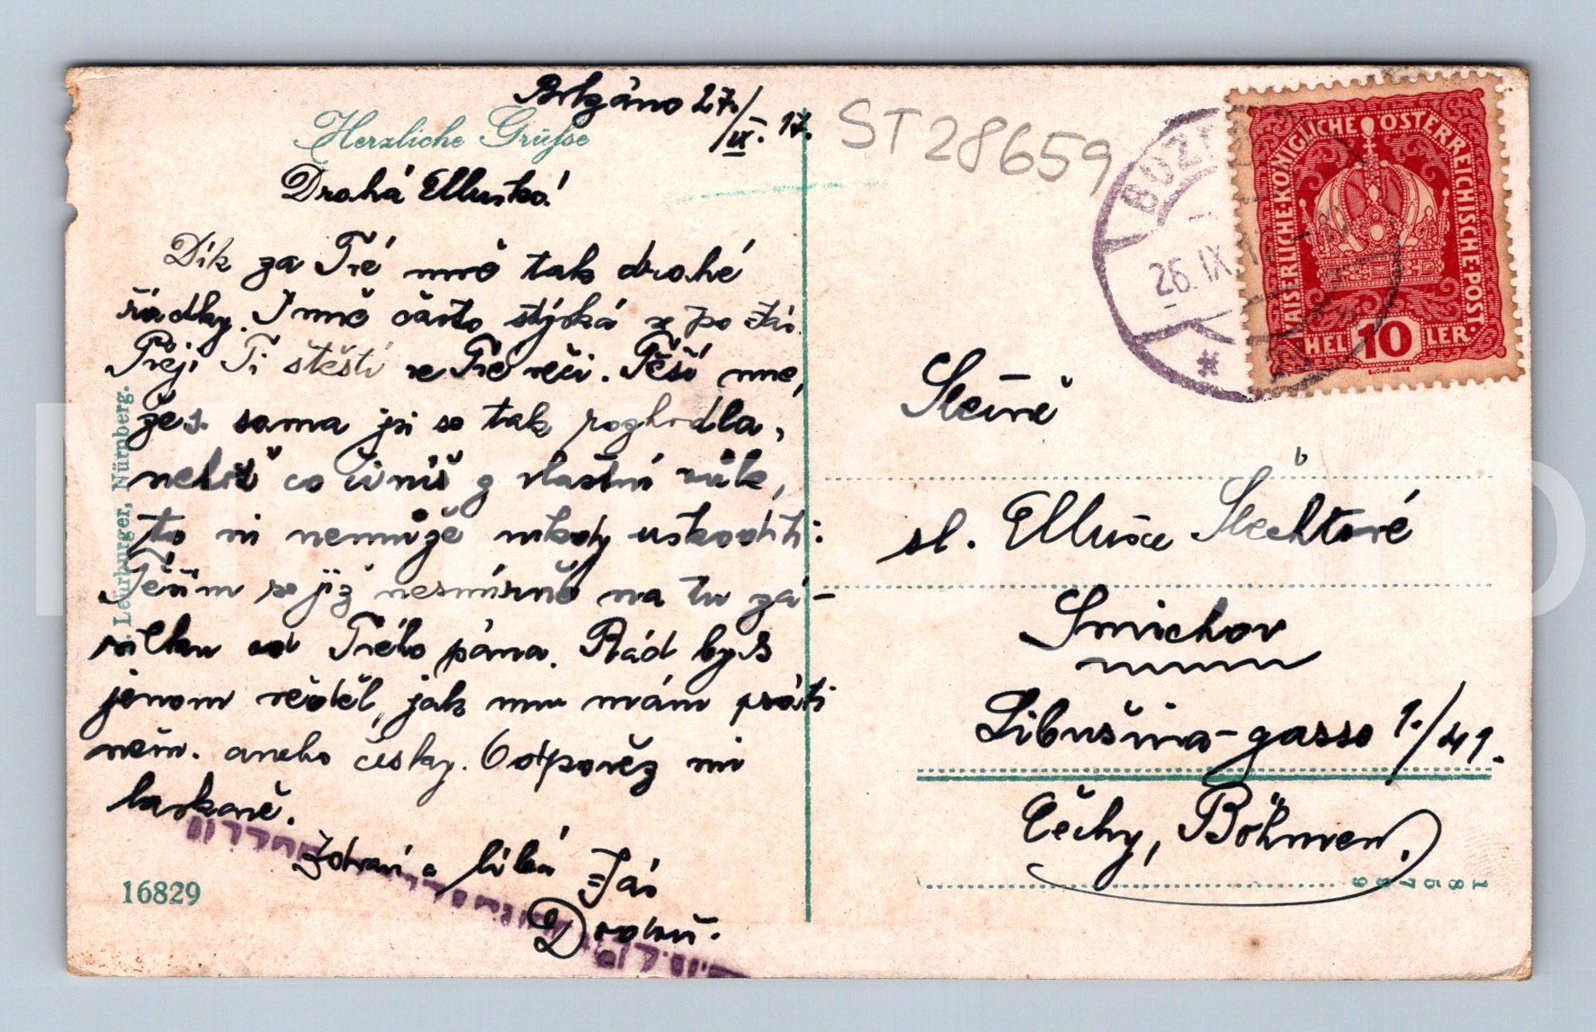 Bolzáno 27./IX. 17.
Herzliche Grüsse
Drahá Elluško!
Dík za Tvé mně tak drahé
řádky. I mně často stýská se po
Přeji Ti štěstí ve Tvé věci. Těší mne,
že s. sama jsi se tak rozhodla,
neboť co činíš z vlastní vůle,
to ni nemůže nikdy uškoditi:
Těším se již nesmírně na tu zá-
silku od Tvého pána. Rád bych
jenom věděl, jak mu mám psáti
něm. aneho česky. Odpověz mi
laskavě.
Zdraví a líbá Tás
16829
Leurburger, Nürnberg.
ST 28659
BUZ
26. IX. 17
KAISERLICHE·KÖNIGLICHE ÖSTERREICHISCHE·POST·
HEL 10 LER
Slečně
sl. Ellušce Šlechtové
Smichov
Libušina-gasse 1./41.
Čechy, Böhmen.